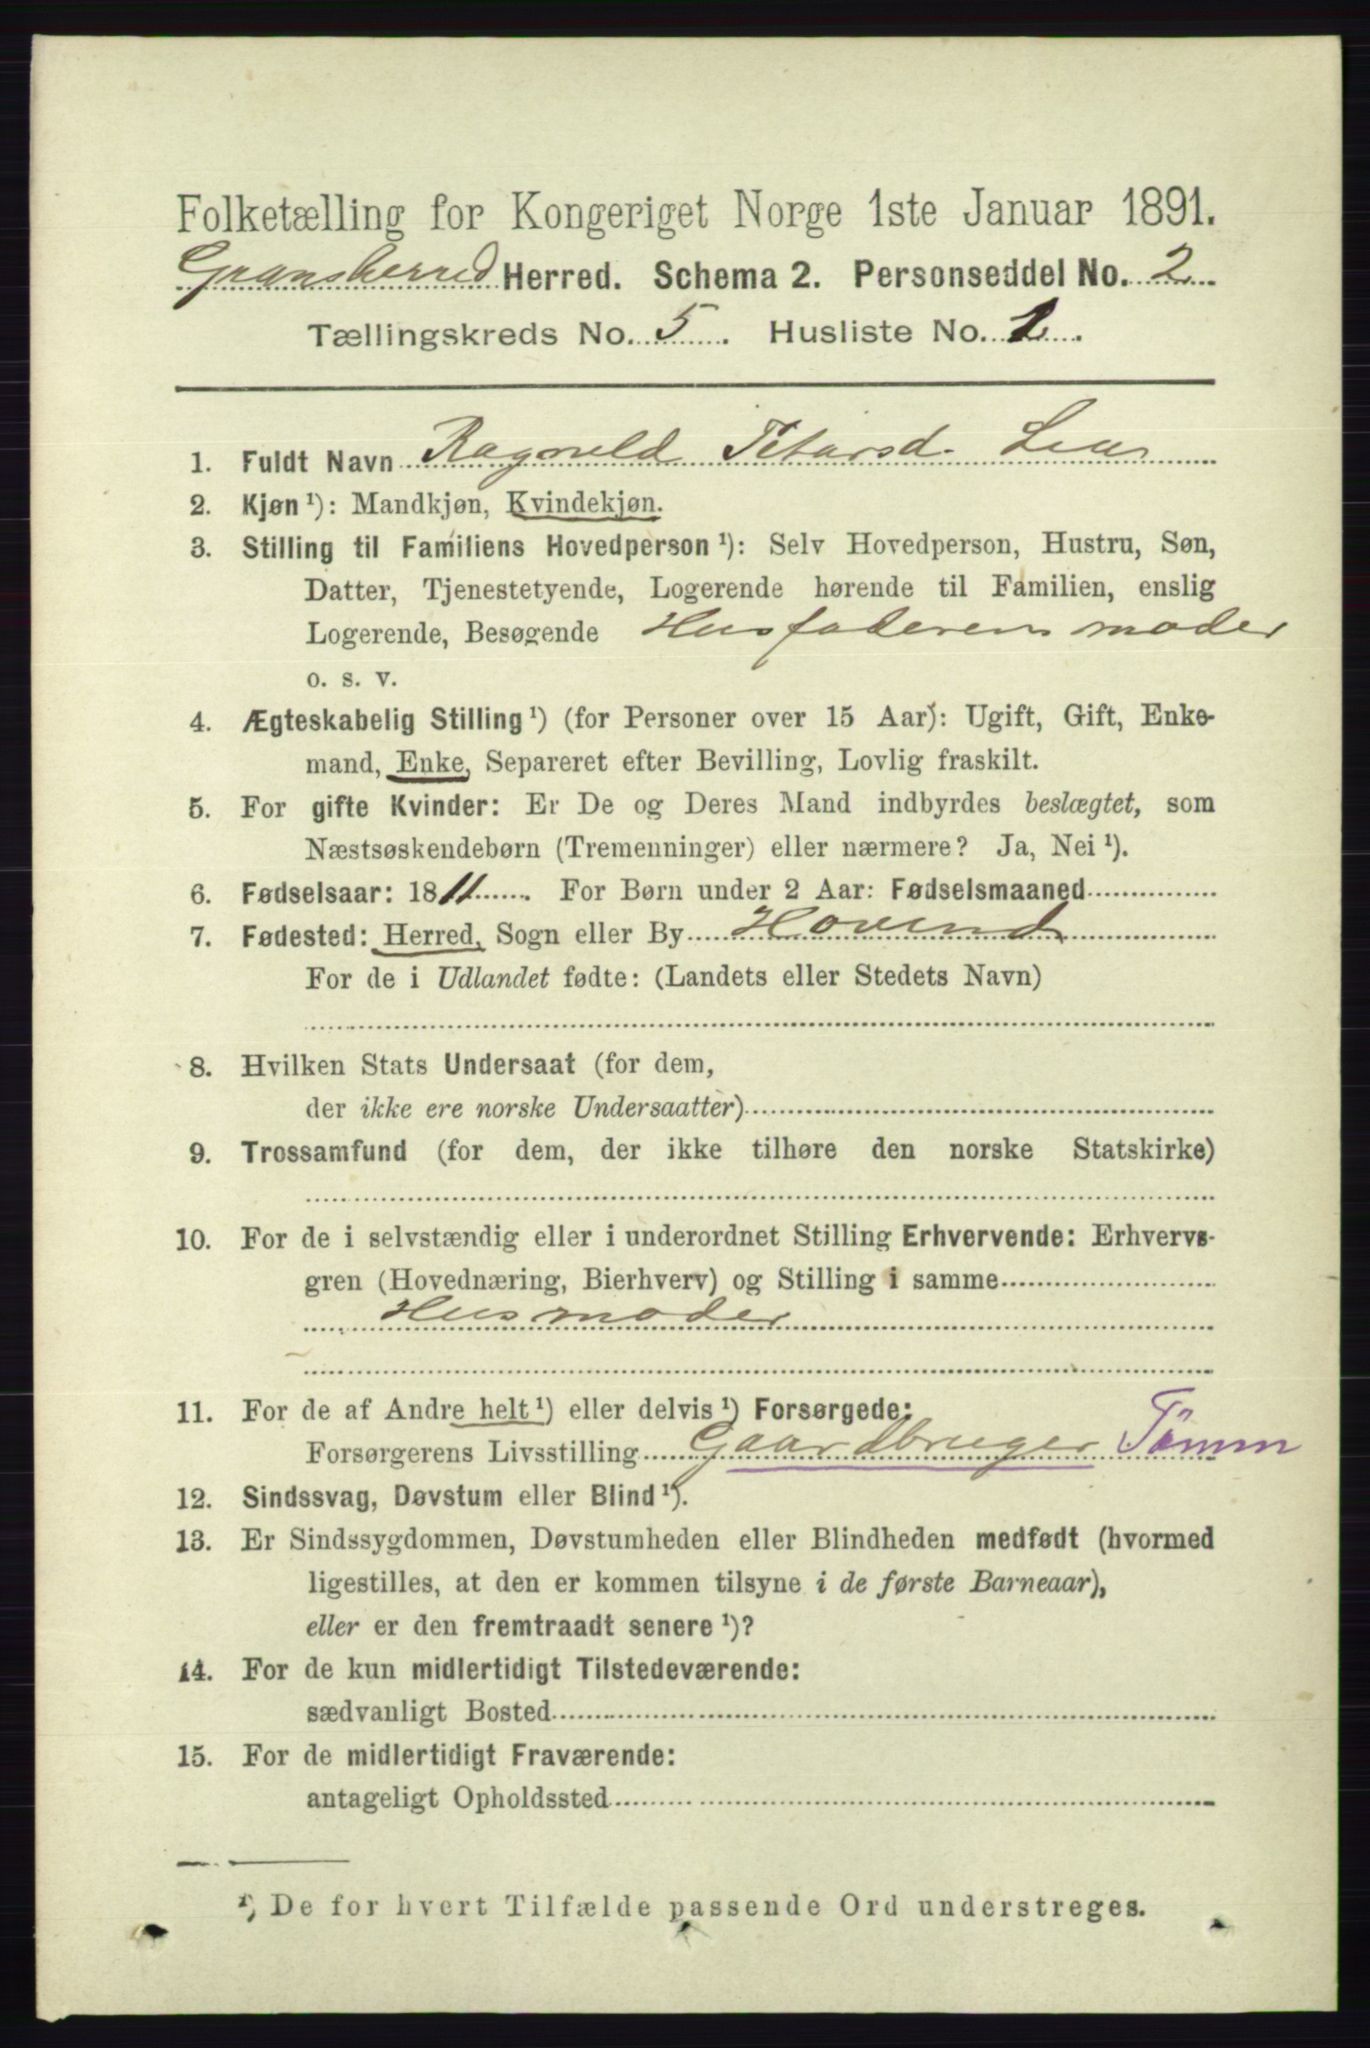 Folketælling for Kongeriget Norge 1ste Januar 1891.
Gransherred Herred. Schema 2. Personseddel No. 2
Tællingskreds No. 5. Husliste No. 1.
1. Fuldt Navn Ragnild Petersd. Lien
2. Kjøn ¹): Mandkjøn, Kvindekjøn.
3. Stilling til Familiens Hovedperson ¹): Selv Hovedperson, Hustru, Søn,
Datter, Tjenestetyende, Logerende hørende til Familien, enslig
Logerende, Besøgende Husfaderens moder
o. s. v.
4. Ægteskabelig Stilling ¹) (for Personer over 15 Aar): Ugift, Gift, Enke-
mand, Enke, Separeret efter Bevilling, Lovlig fraskilt.
5. For gifte Kvinder: Er De og Deres Mand indbyrdes beslægtet, som
Næstsøskendebørn (Tremenninger) eller nærmere? Ja, Nei ¹).
6. Fødselsaar: 1811. For Børn under 2 Aar: Fødselsmaaned
7. Fødested: Herred, Sogn eller By Hovind
For de i Udlandet fødte: (Landets eller Stedets Navn)
8. Hvilken Stats Undersaat (for dem,
der ikke ere norske Undersaatter)
9. Trossamfund (for dem, der ikke tilhøre den norske Statskirke)
10. For de i selvstændig eller i underordnet Stilling Erhvervende: Erhvervs-
gren (Hovednæring, Bierhverv) og Stilling i samme
Husmoder
11. For de af Andre helt ¹) eller delvis ¹) Forsørgede:
Forsørgerens Livsstilling Gaardbruger Tømm
12. Sindssvag, Døvstum eller Blind ¹).
13. Er Sindssygdommen, Døvstumheden eller Blindheden medfødt (hvormed
ligestilles, at den er kommen tilsyne i de første Barneaar),
eller er den fremtraadt senere ¹)?
14. For de kun midlertidigt Tilstedeværende:
sædvanligt Bosted
15. For de midlertidigt Fraværende:
antageligt Opholdssted
¹) De for hvert Tilfælde passende Ord understreges.